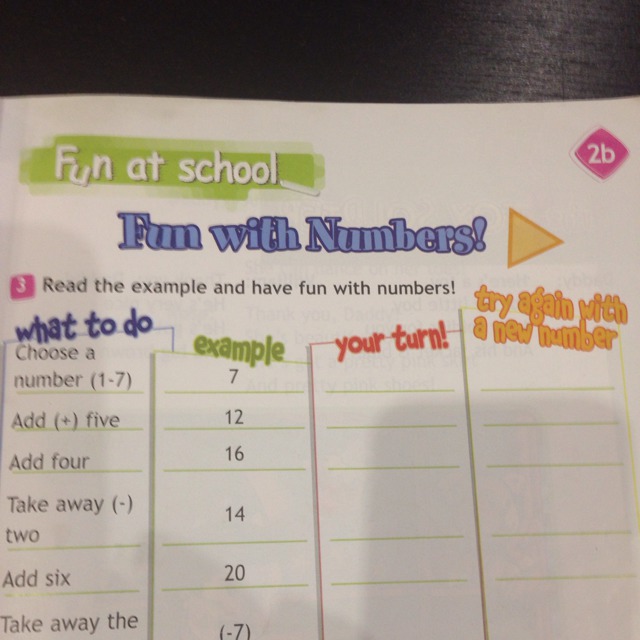 Fun at school
2b
Fun with Numbers!
3 Read the example and have fun with numbers!
what to do
example
your turn!
try again with
a new number
Choose a
number (1-7)
7
Add (+) five
12
Add four
16
Take away (-)
two
14
Add six
20
Take away the
(-7)